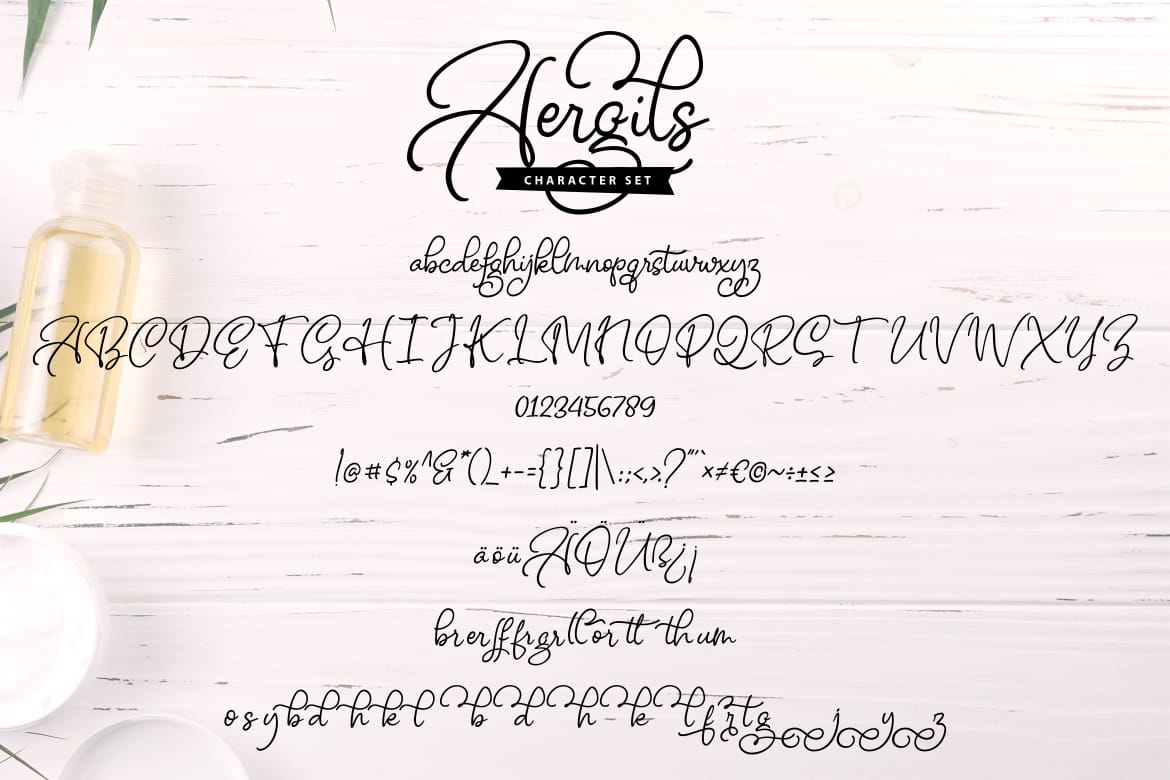 Aergils
CHARACTER SET
abcdefghijklmnopqrstuvwxyz
ABCDEFGHIJKLMNOPQRSTUVWXYZ
0123456789
!@#$%^&*()_+-={}[]|\:;<,>.?"'`×≠€©~÷±≤≥
äöüÄÖÜß¿¡
br er ff fr gr ll or tt th um
o s y b d h k l b d h k l f r t g j y z